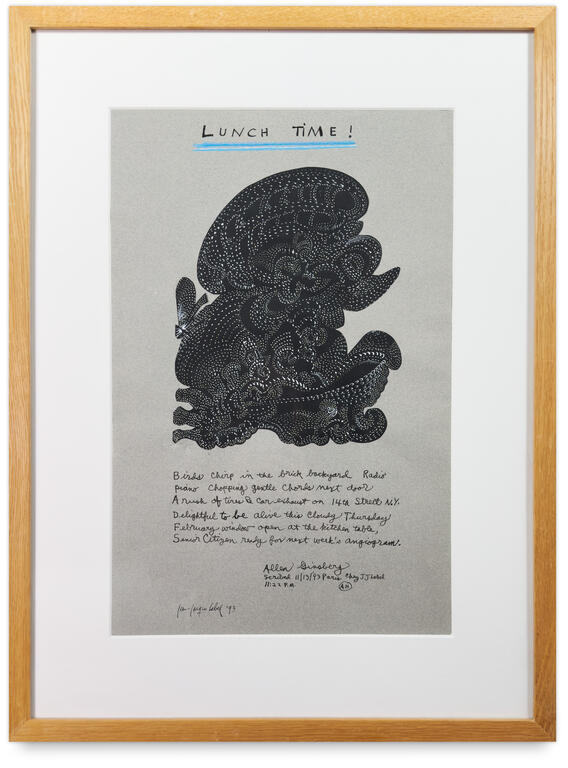 LUNCH TiME!
Birds chirp in the brick backyard Radio
piano chopping gentle chords next door
A rush of tires & car exhaust on 14th Street N.Y.
Delightful to be alive this cloudy Thursday
February window open at the kitchen table,
Senior Citizen ready for next week's angiogram.
Allen Ginsberg
Scribed 11/13/93 Paris Chez JJ Lebel
11:22 P.M. AH
Jean-Jacques Lebel '93